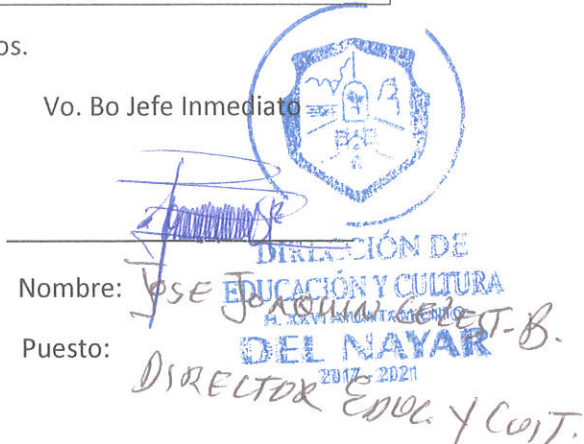 os.
Vo. Bo Jefe Inmediato
DIRECCIÓN DE
EDUCACIÓN Y CULTURA
H. XXVI AYUNTAMIENTO
DEL NAYAR
2017 - 2021
Nombre: JOSE JOAQUIN CELEST-B.
Puesto: DIRECTOR EDUC. Y CULT.